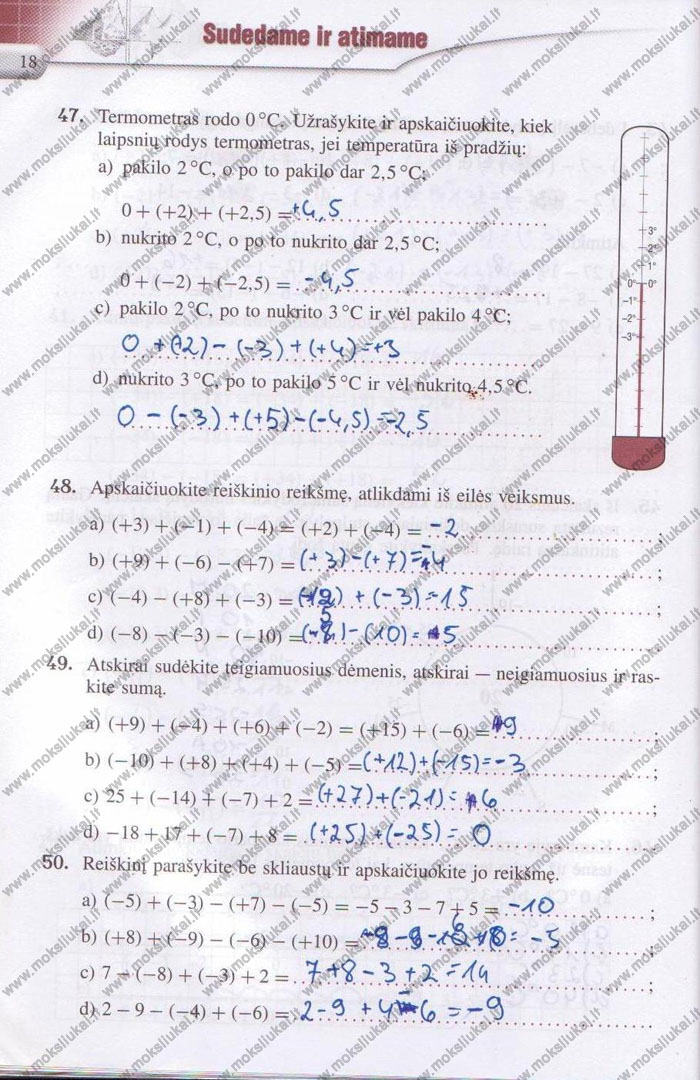 18
Sudedame ir atimame
47. Termometras rodo 0 °C. Užrašykite ir apskaičiuokite, kiek
laipsnių rodys termometras, jei temperatūra iš pradžių:
a) pakilo 2 °C, o po to pakilo dar 2,5 °C;
0 + (+2) + (+2,5) = +4,5
b) nukrito 2 °C, o po to nukrito dar 2,5 °C;
0 + (−2) + (−2,5) = −4,5
c) pakilo 2 °C, po to nukrito 3 °C ir vėl pakilo 4 °C;
0 + (+2) − (−3) + (+4) = +3
d) nukrito 3 °C, po to pakilo 5 °C ir vėl nukrito 4,5 °C.
0 − (−3) + (+5) − (−4,5) = −2,5
+3°
+2°
+1°
0° 0°
−1°
−2°
−3°
48. Apskaičiuokite reiškinio reikšmę, atlikdami iš eilės veiksmus.
a) (+3) + (−1) + (−4) = (+2) + (−4) = −2 ;
b) (+9) + (−6) − (+7) = (+3) − (+7) = −4 ;
c) (−4) − (+8) + (−3) = (−12) + (−3) = 15 ;
d) (−8) − (−3) − (−10) = (−5) − (10) = 5 ;
49. Atskirai sudėkite teigiamuosius dėmenis, atskirai — neigiamuosius ir ras-
kite sumą.
a) (+9) + (−4) + (+6) + (−2) = (+15) + (−6) = +9 ;
b) (−10) + (+8) + (+4) + (−5) = (+12) + (−15) = −3 ;
c) 25 + (−14) + (−7) + 2 = (+27) + (−21) = +6 ;
d) −18 + 17 + (−7) + 8 = (+25) + (−25) = 0
50. Reiškinį parašykite be skliaustų ir apskaičiuokite jo reikšmę.
a) (−5) + (−3) − (+7) − (−5) = −5 − 3 − 7 + 5 = −10 ;
b) (+8) + (−9) − (−6) − (+10) = = −5 ;
c) 7 − (−8) + (−3) + 2 = 7 + 8 − 3 + 2 = 14 ;
d) 2 − 9 − (−4) + (−6) = 2 − 9 + 4 − 6 = −9
www.moksliukai.lt